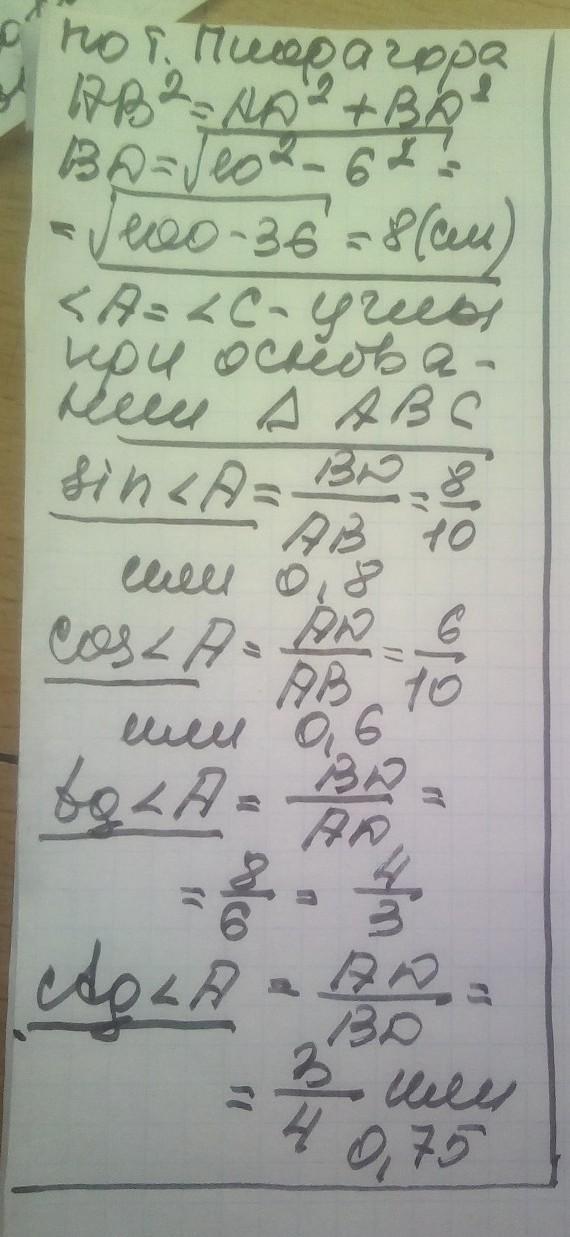 по т. Пифагора
AB² = AD² + BD²
BD = √10² - 6² =
= √100 - 36 = 8 (см)
<A = <C - углы
при основа-
нии Δ ABC
sin <A = BD/AB = 8/10
или 0,8
cos <A = AD/AB = 6/10
или 0,6
tg <A = BD/AD =
= 8/6 = 4/3
ctg <A = AD/BD =
= 3/4 или
0,75